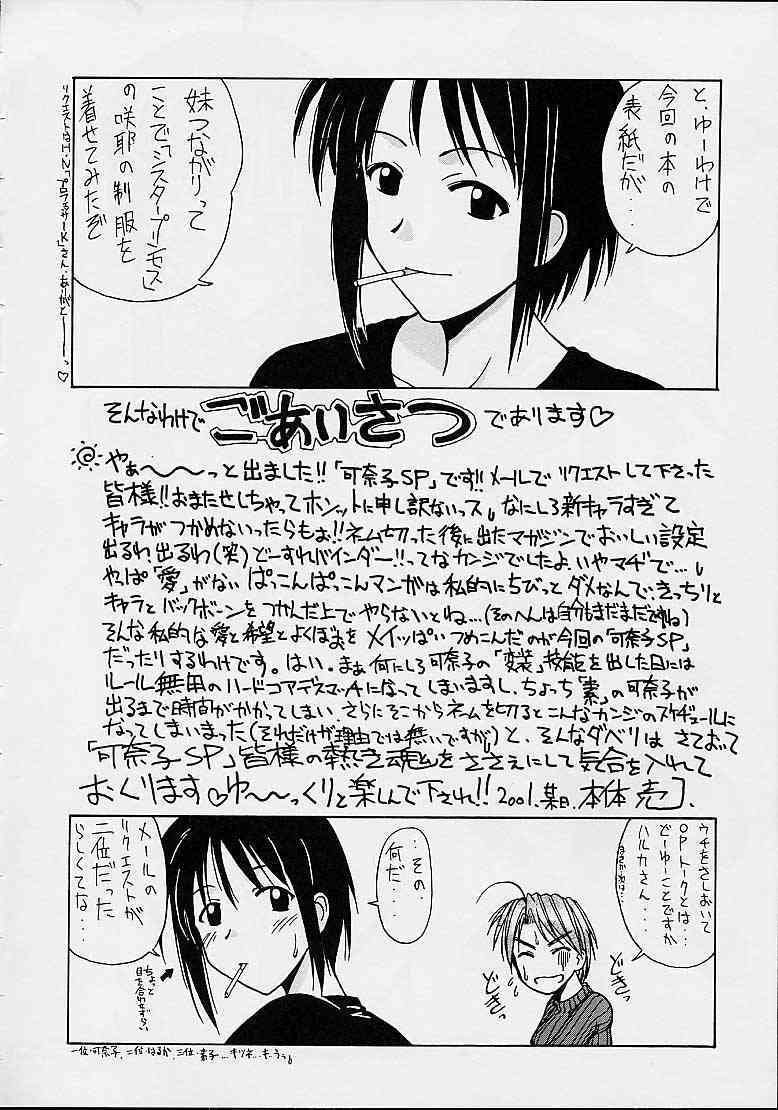 と、ゆーわけで
今回の本の
表紙だが・・・
妹つながりって
ことで「シスタープリンセス」
の咲耶の制服を
着せてみたぞ
リクエストはH・N「プロフェッサーK」さん・ありがとーーーっ♡
そんなわけで ごあいさつ であります♡
やぁ〜〜〜っと出ました!!「可奈子SP」です!!メールでリクエストして下さった
皆様!!おまたせしちゃってホンットに申し訳ないっス。なにしろ新キャラすぎて
キャラがつかめないったらもぉ!!ネーム切った後に出たマガジンでおいしい設定
出るわ出るわ(笑)どーすればインダー!!ってなカンジでしたよ、いやマヂで…。
やっぱ「愛」がない ぱっこんぱっこんマンガは私的にちびっとダメなんで、きっちりと
キャラとバックボーンをつかんだ上でやらないとね…(そのへんは自分もまだまだですね)
そんな私的な愛と希望とよくぼぉをメイッぱいつめこんだのが今回の「可奈子SP」
だったりするわけです。はい。まぁ何にしろ可奈子の「変装」技能を出した日には
ルール無用のハードコアデスマッチになってしまいますし、ちょっち「素」の可奈子が
出るまで時間がかかってしまい、さらにそこからネームを切るとこんなカンジのスケヂュールに
なってしまいまった(それだけが理由では無いですが)と、そんなダベリはさておいて
「可奈子SP」皆様の熱き魂をささえにして気合を入れて
おくります♡ゆ〜〜っくりと楽しんで下され!! 2001.某日.本体 売].
ウチをさしおいて
OPトークとは・・
どーゆーことですか
ハルカさん・・・
・・その
何だ・・・
メールの
リクエストが
二位だった
らしくてな・・
どきっ
どきっ
ちょっと
目を合わせずらい
一位・可奈子、二位・はるか、三位・素子…キツネ…キ、うぅ。